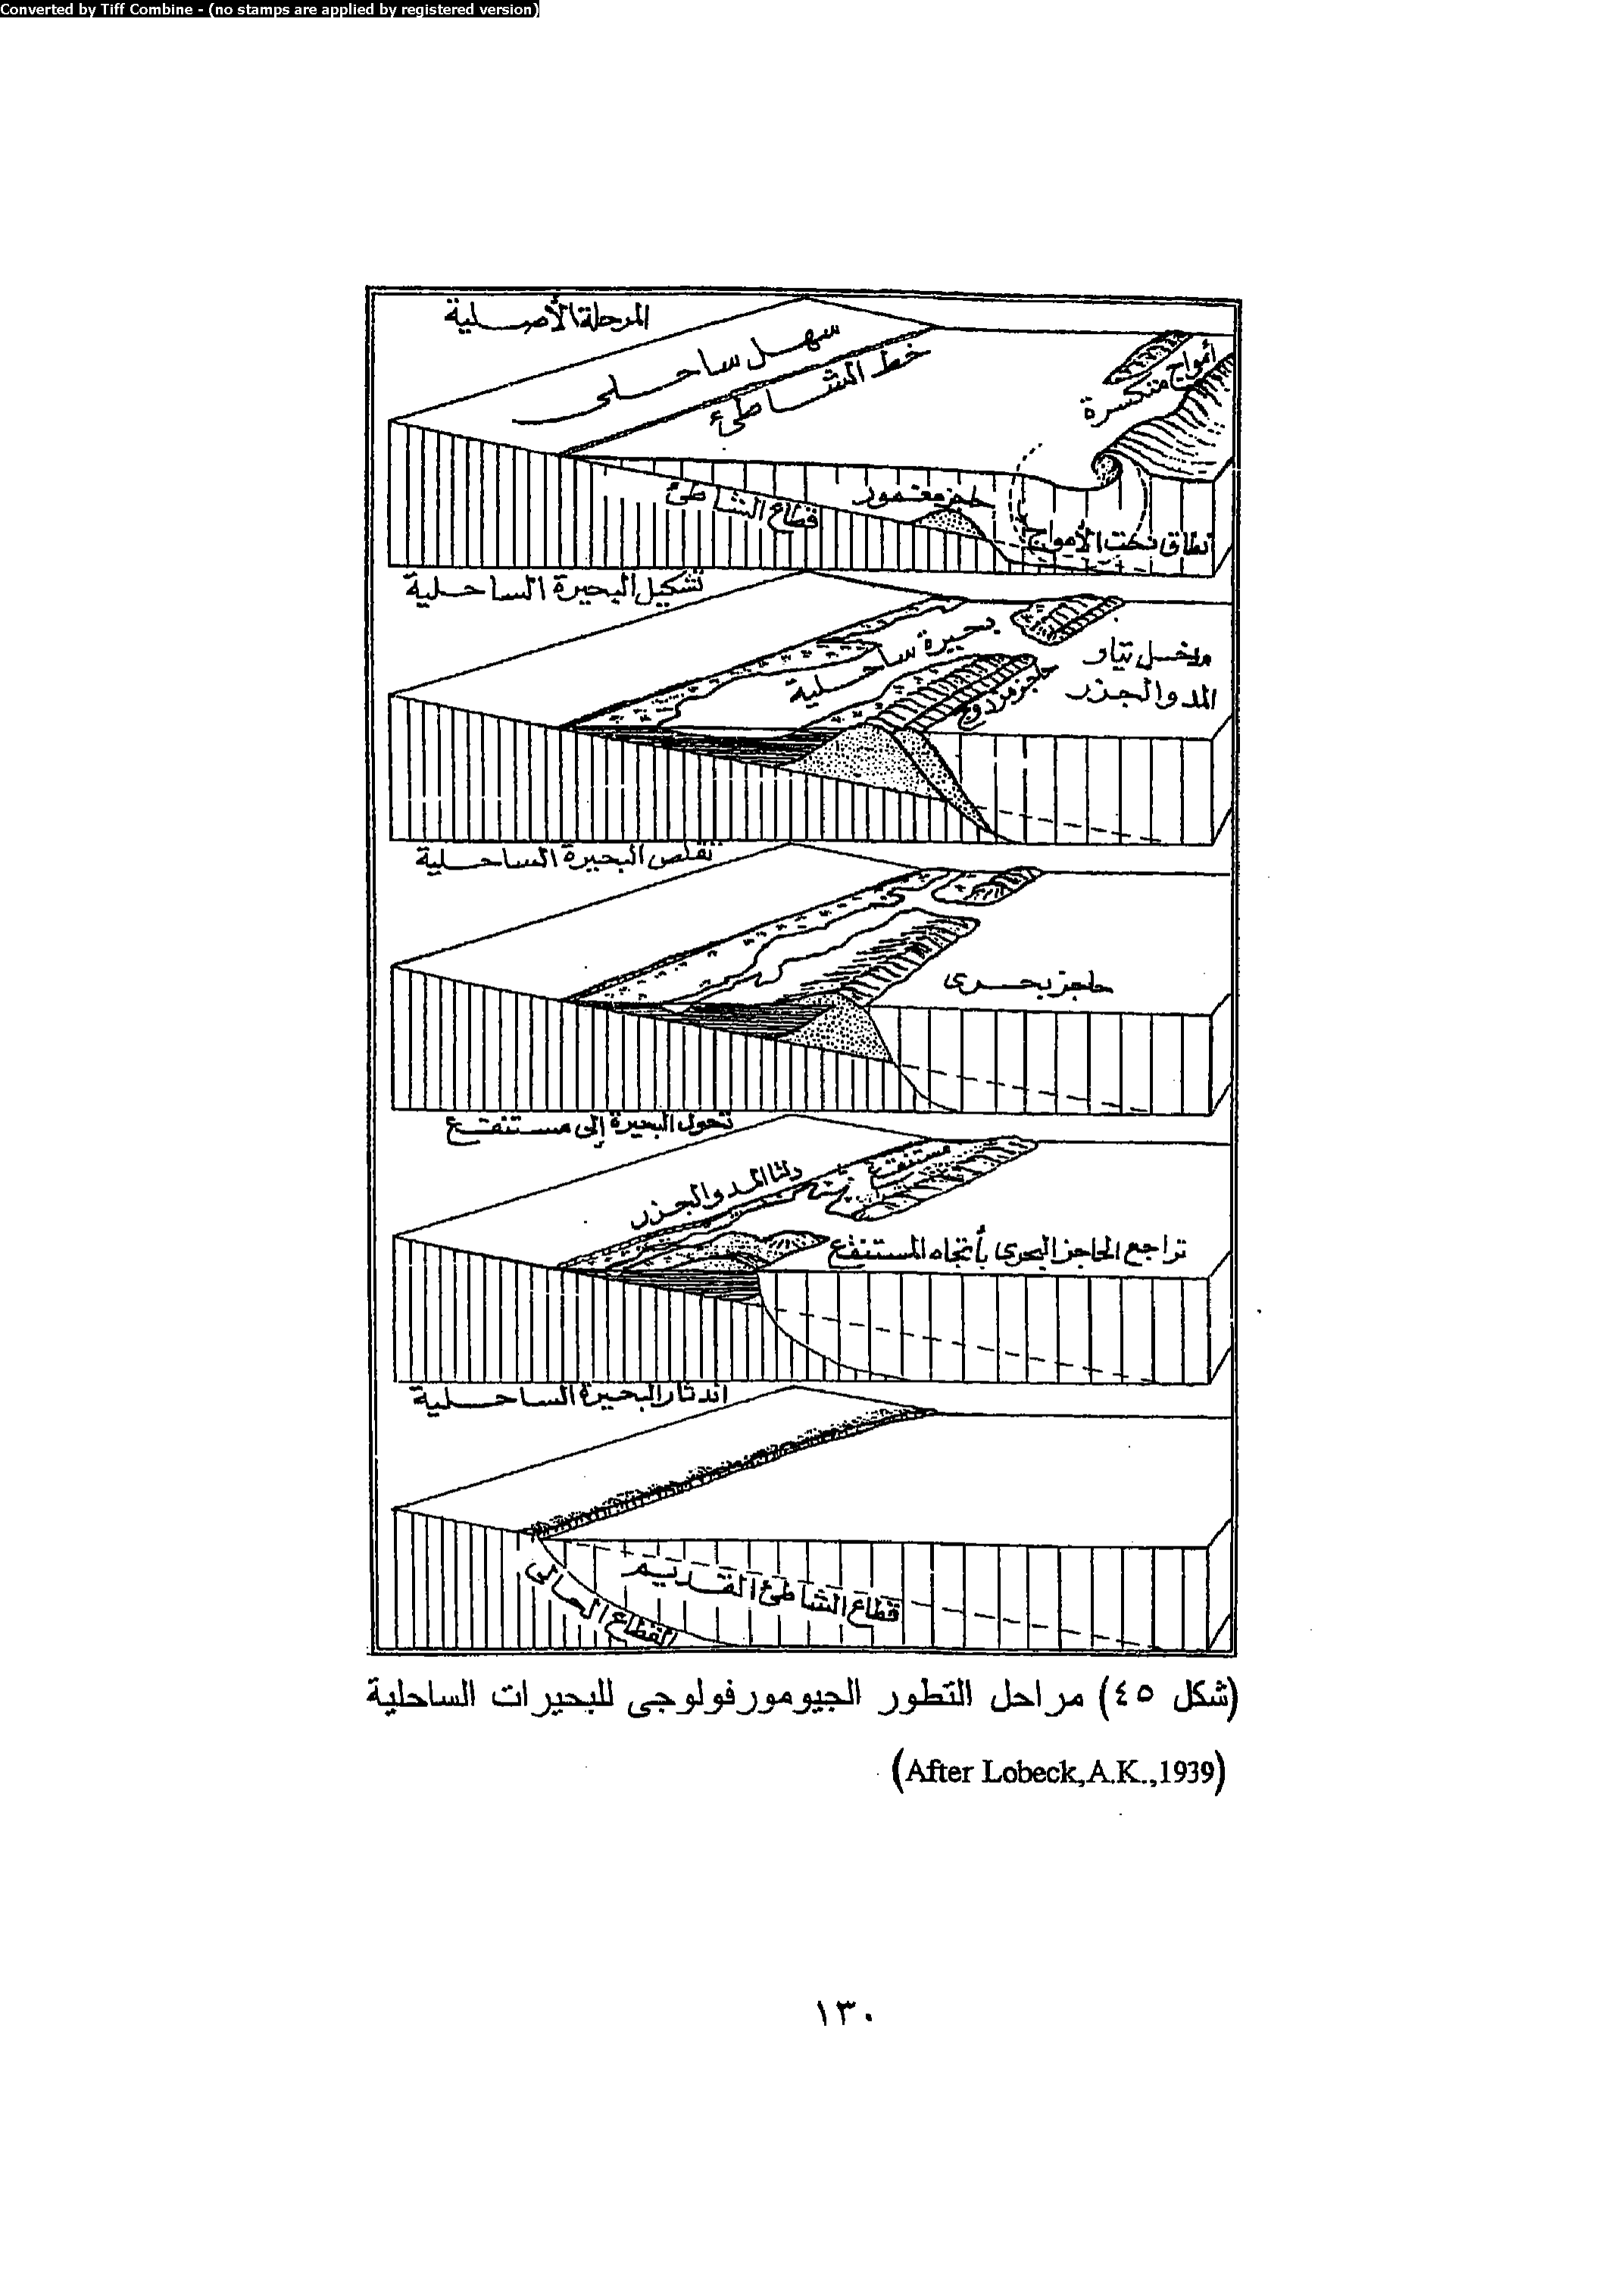 Converted by Tiff Combine - (no stamps are applied by registered version)
المرحلة الأصلية
سهل ساحلى
خط الشاطئ
أمواج منكسرة
قطاع الشاطئ
حاجز مغمور
نطاق نحت الأمواج
تشكيل البحيرة الساحلية
بحيرة ساحلية
حاجز مزدوج
مدخل تيار
المد والجزر
تقلص البحيرة الساحلية
حاجز بحرى
تحول البحيرة إلى مستنقع
دلتا المد والجزر
مستنقع
تراجع الحاجز البحرى بأتجاه المستنقع
اندثار البحيرة الساحلية
القطاع الحالى
قطاع الشاطئ القديم
(شكل ٤٥) مراحل التطور الجيومورفولوجى للبحيرات الساحلية
(After Lobeck,A.K.,1939)
١٣٠